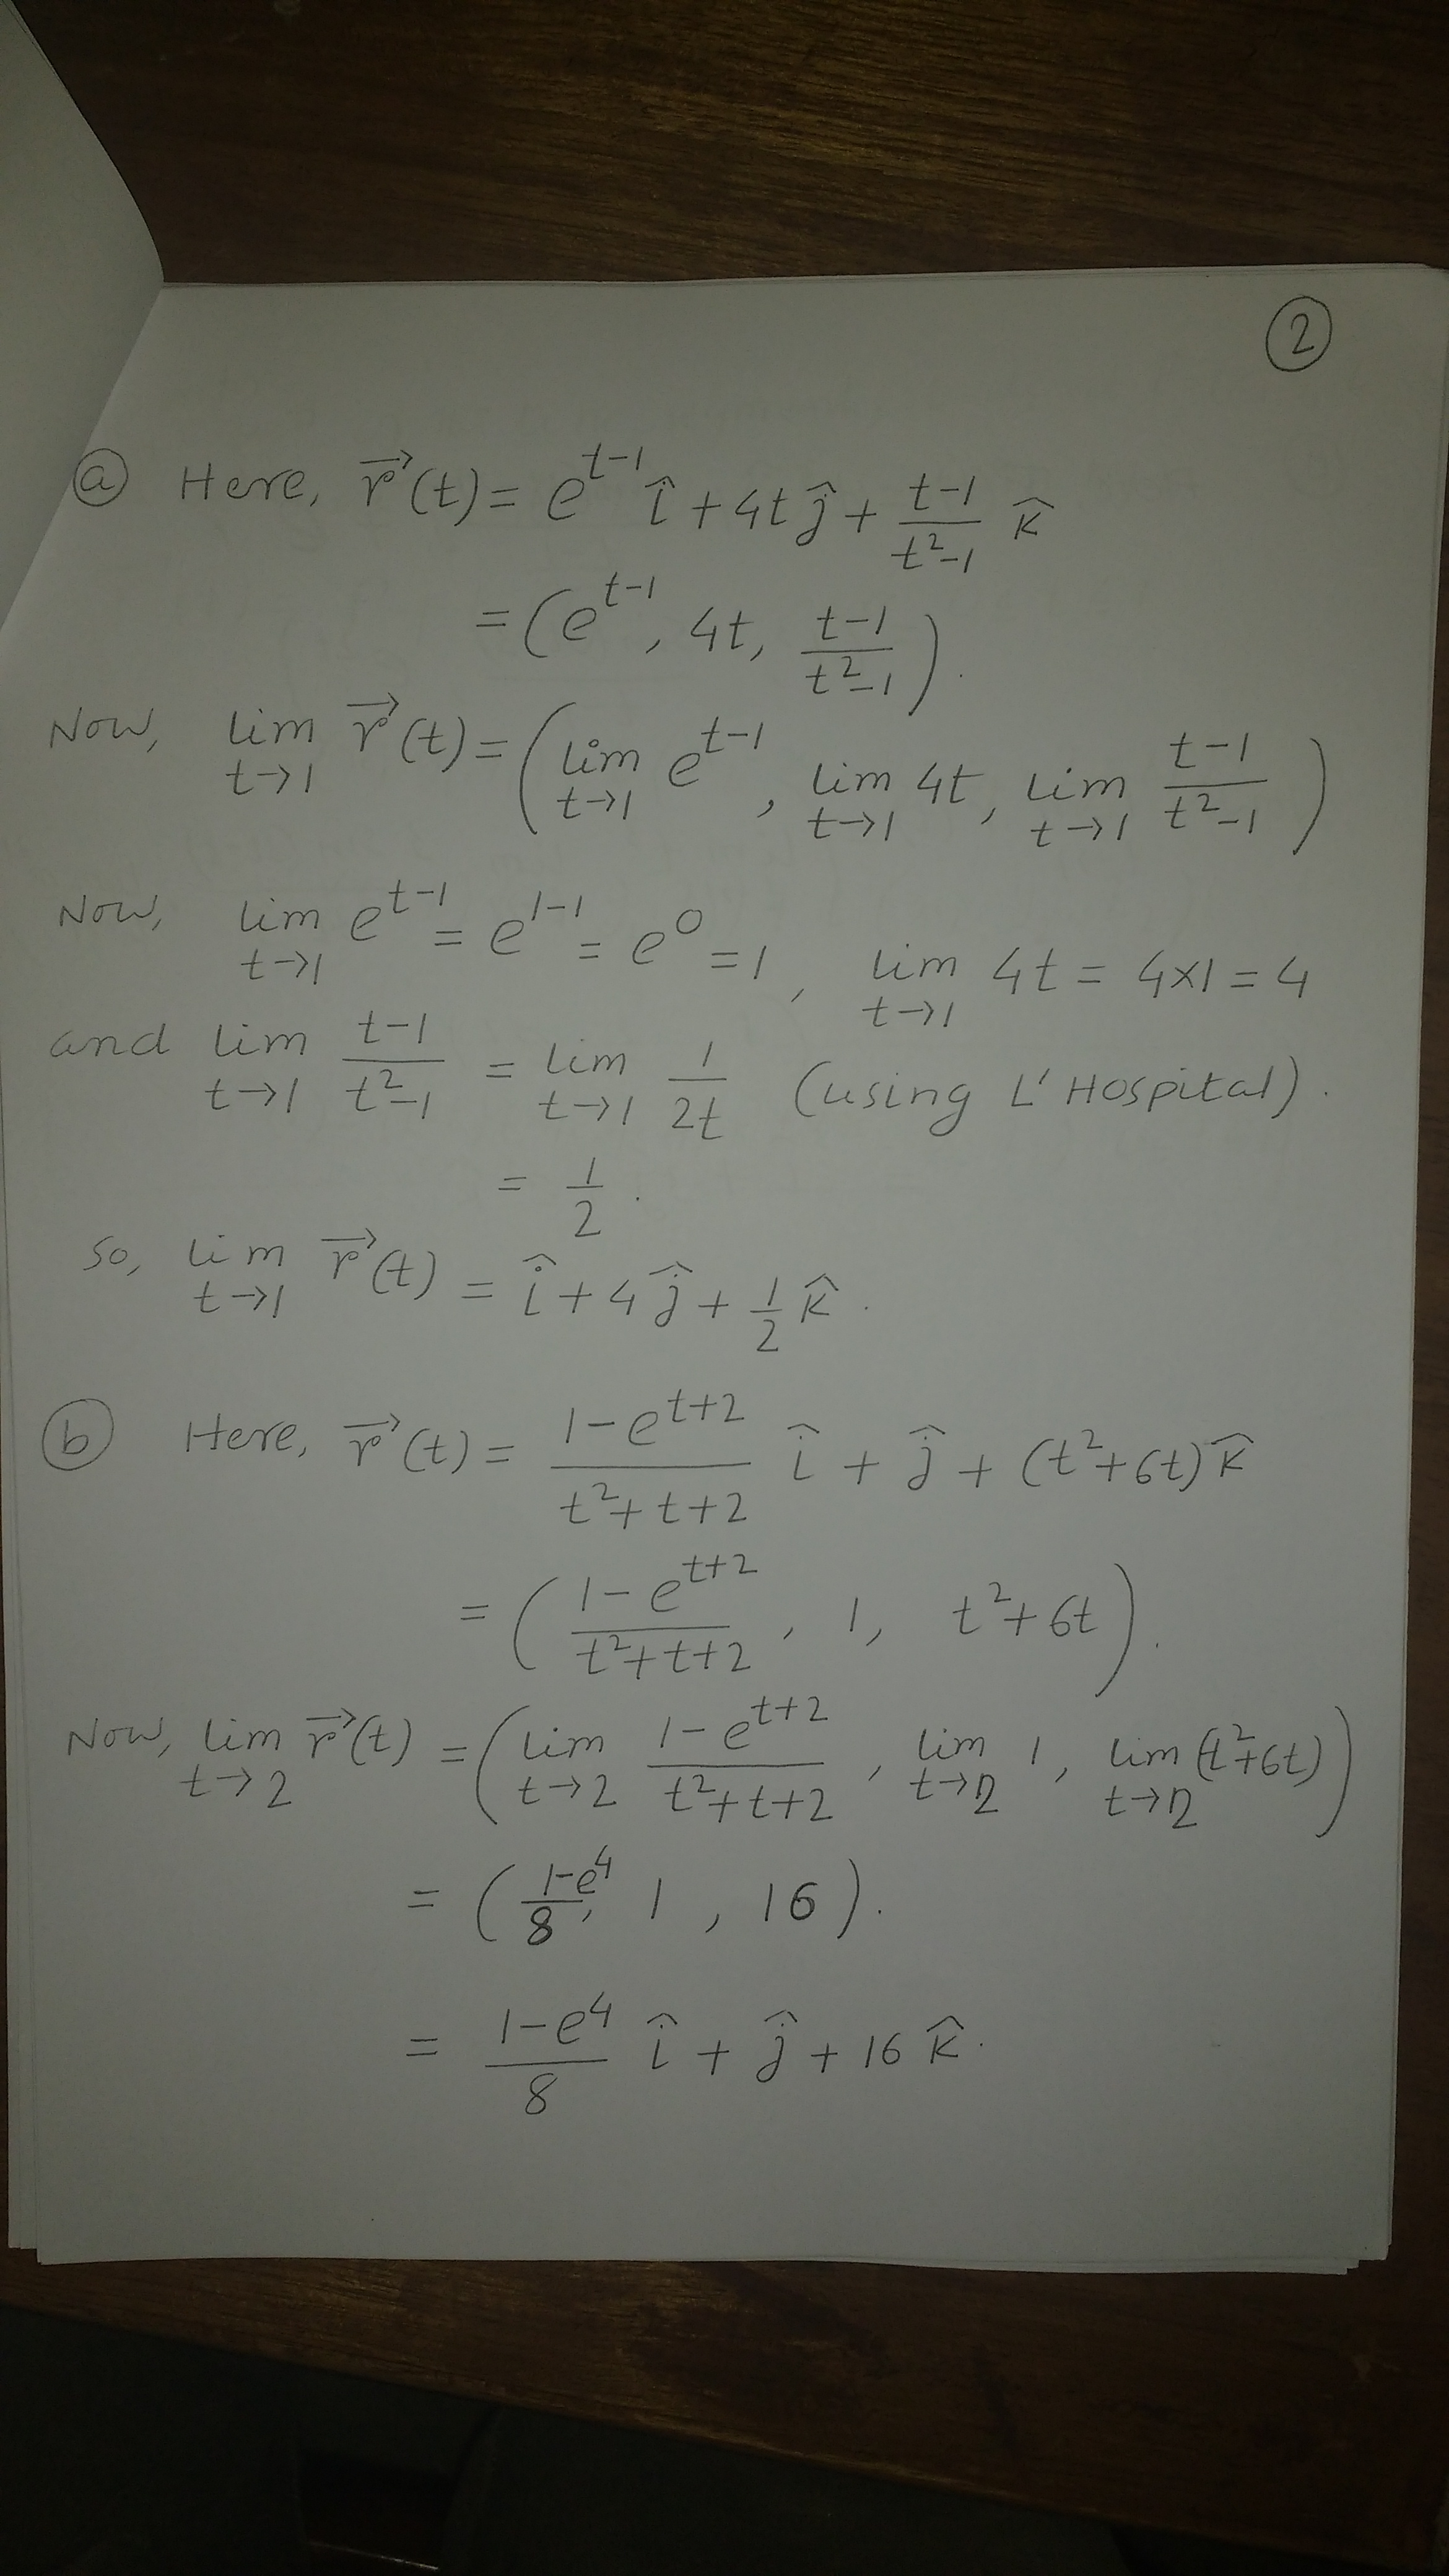 ②
ⓐ Here, r⃗(t) = e^{t-1} î + 4t ĵ + \frac{t-1}{t^2-1} k̂
= (e^{t-1}, 4t, \frac{t-1}{t^2-1}).
Now, lim_{t→1} r⃗(t) = (lim_{t→1} e^{t-1}, lim_{t→1} 4t, lim_{t→1} \frac{t-1}{t^2-1})
Now, lim_{t→1} e^{t-1} = e^{1-1} = e^0 = 1, lim_{t→1} 4t = 4×1 = 4
and lim_{t→1} \frac{t-1}{t^2-1} = lim_{t→1} \frac{1}{2t} (using L'Hospital).
= \frac{1}{2}.
So, lim_{t→1} r⃗(t) = î + 4ĵ + \frac{1}{2} k̂.
ⓑ Here, r⃗(t) = \frac{1-e^{t+2}}{t^2+t+2} î + ĵ + (t^2+6t) k̂
= (\frac{1-e^{t+2}}{t^2+t+2}, 1, t^2+6t).
Now, lim_{t→2} r⃗(t) = (lim_{t→2} \frac{1-e^{t+2}}{t^2+t+2}, lim_{t→2} 1, lim_{t→2} (t^2+6t))
= (\frac{1-e^4}{8}, 1, 16).
= \frac{1-e^4}{8} î + ĵ + 16 k̂.